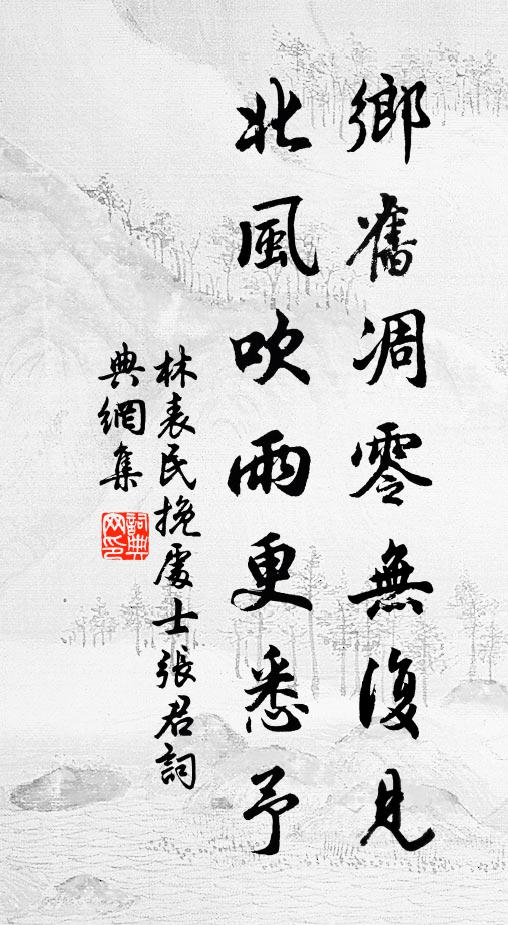 鄉舊凋零無復見
北風吹雨更悉予
林表民挽處士張君詞
典網集
詞典網印